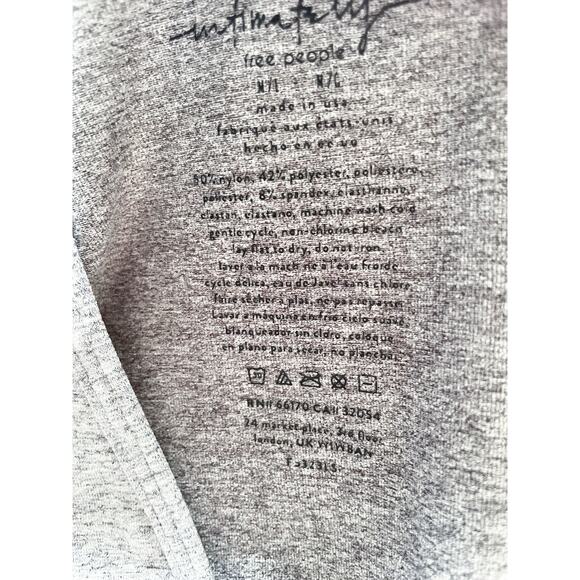 intimately
free people
M/L : M/G
made in usa
fabriqué aux états-unis
hecho en ee uu
50% nylon, 42% polyester, poliestere
poliester, 8% spandex, elasthanne,
elastan, elastano, machine wash cold
gentle cycle, non-chlorine bleach
lay flat to dry, do not iron
laver a la mach ne a l'eau froide
cycle delica, eau de Jave' sans chlore
faire sécher a plas, ne pas repasser
Lavar a maquina en frio ciclo suave,
blanqueador sin cloro, coloque
en plano para secar, no plancha,
30
RN# 66170 CA# 32054
24 market place, 3rd floor
london, UK W1W8AN